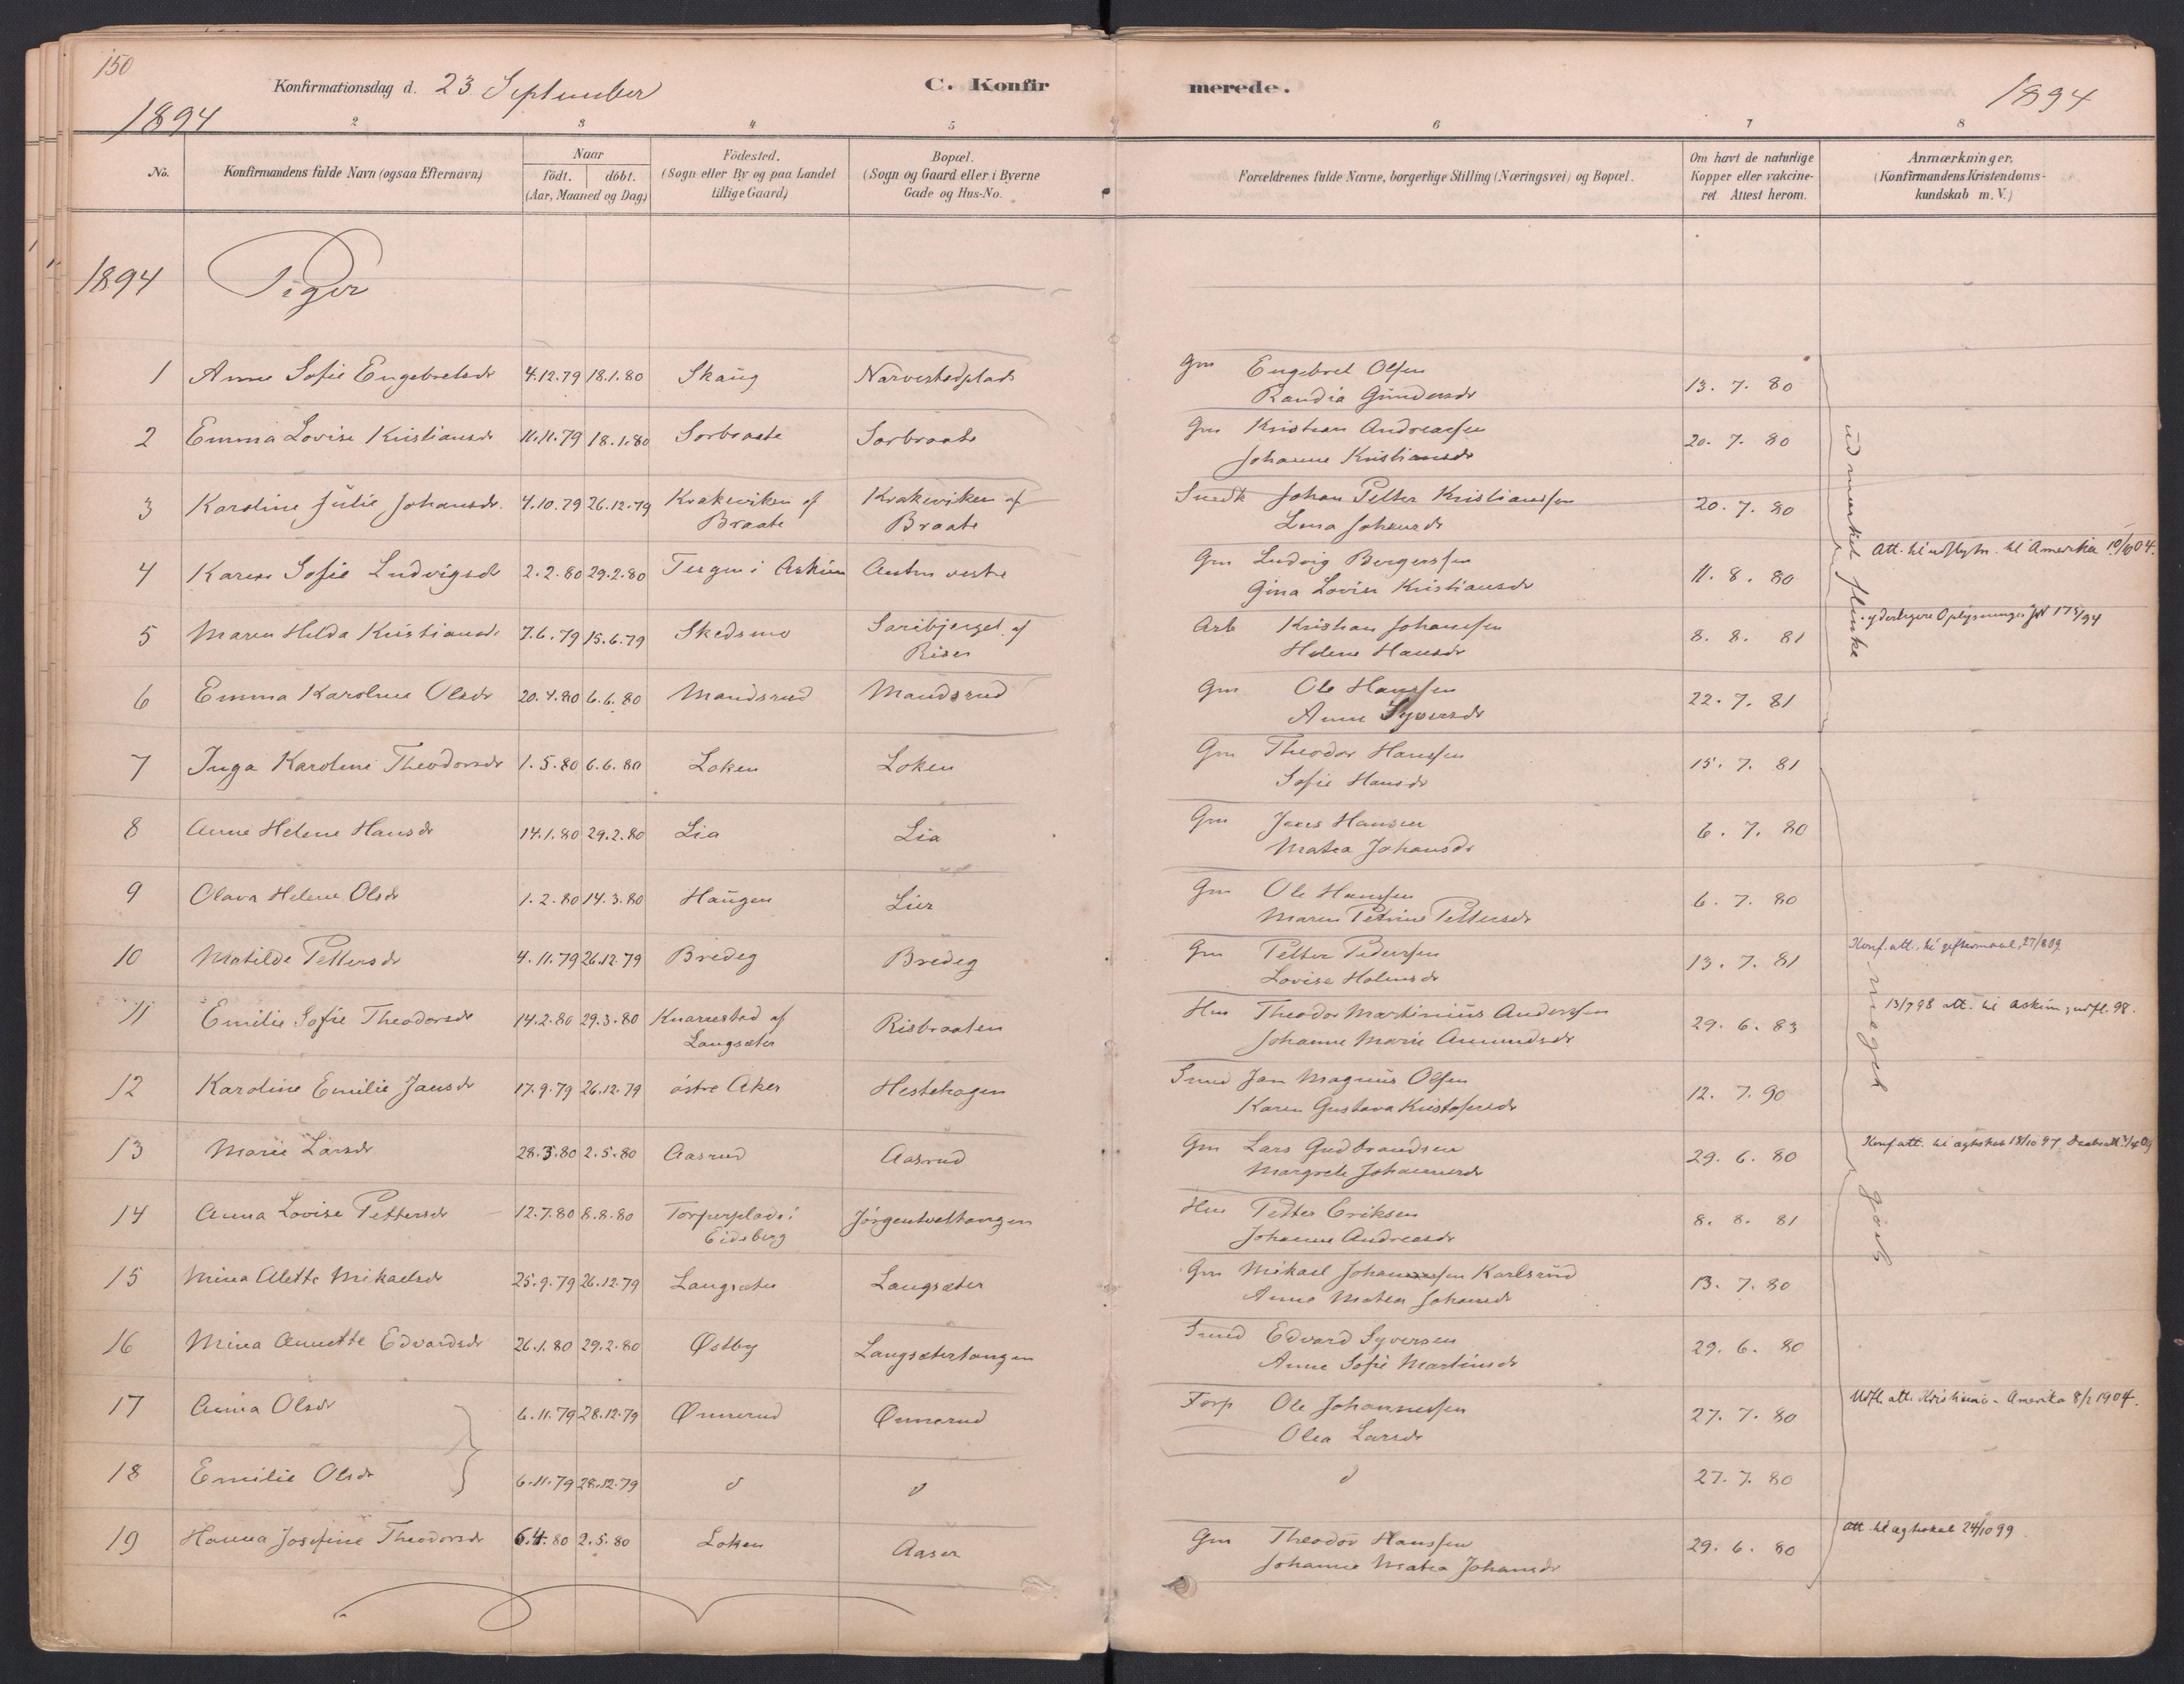 150
Konfirmationsdag d. 23 September
C. Konfirmerede.
1894
1894
2 3 4 5 6 7 8
No.
Konfirmandens fulde Navn (ogsaa Efternavn)
Naar
födt. döbt.
(Aar, Maaned og Dag)
Födested.
(Sogn eller By og paa Landet
tillige Gaard)
Bopæl.
(Sogn og Gaard eller i Byerne
Gade og Hus-No.
Forældrenes fulde Navne, borgerlige Stilling (Næringsvei) og Bopæl.
Om havt de naturlige
Kopper eller vakcine-
ret. Attest herom.
Anmærkninger.
(Konfirmandens Kristendoms-
kundskab m. V.)
1894 Piger
1 Anne Sofie Engebretsdr 4.12.79 18.1.80 Skaug Narvestadplads Gm Engebret Olsen
Randia Gundersdr 13. 7. 80
2 Emma Lovise Kristiansdr 11.11.79 18.1.80 Sorbraate Sorbraate Gm Kristian Andreassen
Johanne Kristiansdr 20. 7. 80
3 Karoline Julie Johansdr. 4.10.79 26.12.79 Krakeviken af Krakeviken af Snedk Johan Petter Kristianssen
Braate Braate Lena Johansdr 20. 7. 80
4 Karen Sofie Ludvigsdr 2.2.80 29.2.80 i Askim vestre Gm Ludvig Bergerssen
Gina Lovise Kristiansdr 11. 8. 80
Att. til udflytn. til Amerika 10/6 04.
5 Maren Hilda Kristiansdr 7.6.79 15.6.79 Skedsmo Saribjerget af Arb Kristian Johanssen
Riser Helene Hansdr 8. 8. 81
yderligere Oplysninger
6 Emma Karoline Olsdr 20.4.80 6.6.80 Mandsrud Mandsrud Gm Ole Hanssen
Anne Syversdr 22. 7. 81
7 Inga Karoline Theodorsdr 1.5.80 6.6.80 Loken Loken Gm Theodor Hanssen
Sofie Hansdr 15. 7. 81
8 Anne Helene Hansdr 14.1.80 29.2.80 Lia Lia Gm Hansen
Matea Johansdr 6. 7. 80
9 Olava Helene Olsdr 1.2.80 14.3.80 Haugen Lier Gm Ole Hanssen
Maren Petrine Pettersdr 6. 7. 80
10 Matilde Pettersdr 4.11.79 26.12.79 Bredeg Bredeg Gm Petter Pederssen
Lovise Holmsdr 13. 7. 81
Konf.att. til giftermaal 27/8 09
11 Emilie Sofie Theodorsdr 14.2.80 29.3.80 Knarrestad af Risbraaten Hm Theodor Martinius Anderssen
Langsæter Johanne Marie Amundsdr 29. 6. 83
13/7 98 att. til Askim, udfl. 98.
12 Karoline Emilie Jansdr 17.9.79 26.12.79 östre Aker Hestehagen Smed Jan Magnus Olsen
Karen Gustava Kristofersdr 12. 7. 90
13 Marie Larsdr 28.3.80 2.5.80 Aasrud Aasrud Gm Lars Gudbrandsen
Margrete Johannesdr 29. 6. 80
Konf.att. til ægteskab 18/10 97
14 Anna Lovise Pettersdr 12.7.80 8.8.80 Torperplads i Jörgentvettangen Hm Petter Eriksen
Eidsberg Johanne Andreasdr 8. 8. 81
15 Mina Alette Mikaelsdr 25.9.79 26.12.79 Langsæter Langsæter Gm Mikael Johannessen Karlsrud
Anne Matea Johansdr 13. 7. 80
16 Mina Annette Edvardsdr 26.1.80 29.2.80 Østby Langsætertangen Smed Edvard Syversen
Anne Sofie Martinsdr 29. 6. 80
17 Anna Olsdr 6.11.79 28.12.79 Ønnerud Ønnerud Forp Ole Johannessen
Olea Larsdr 27. 7. 80
Udfl. att. Kristiania - Amerika 8/2 1904.
18 Emilie Olsdr 6.11.79 28.12.79 d d d 27. 7. 80
19 Hanna Josefine Theodorsdr 6.4.80 2.5.80 Loken Aaser Gm Theodor Hanssen
Johanne Matea Johansdr 29. 6. 80
att til ægteskab 24/10 99
udmærket flinke
meget godt